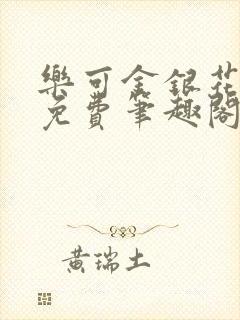 樂可金銀花
免費筆趣閣
黃瑞土